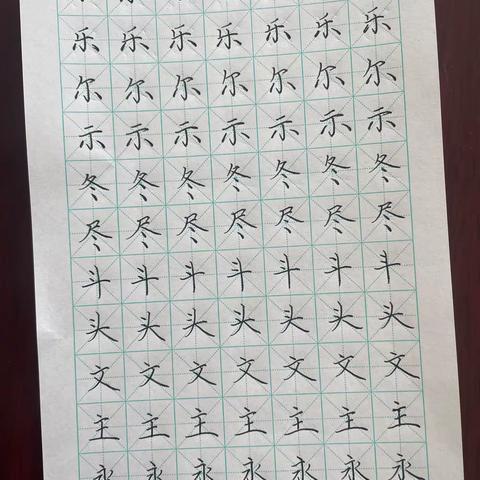 乐乐乐乐乐乐乐
尔尔尔尔尔尔尔
示示示示示示示
冬冬冬冬冬冬冬
尽尽尽尽尽尽尽
斗斗斗斗斗斗斗
头头头头头头头
文文文文文文文
主主主主主主主
永永永永永永永